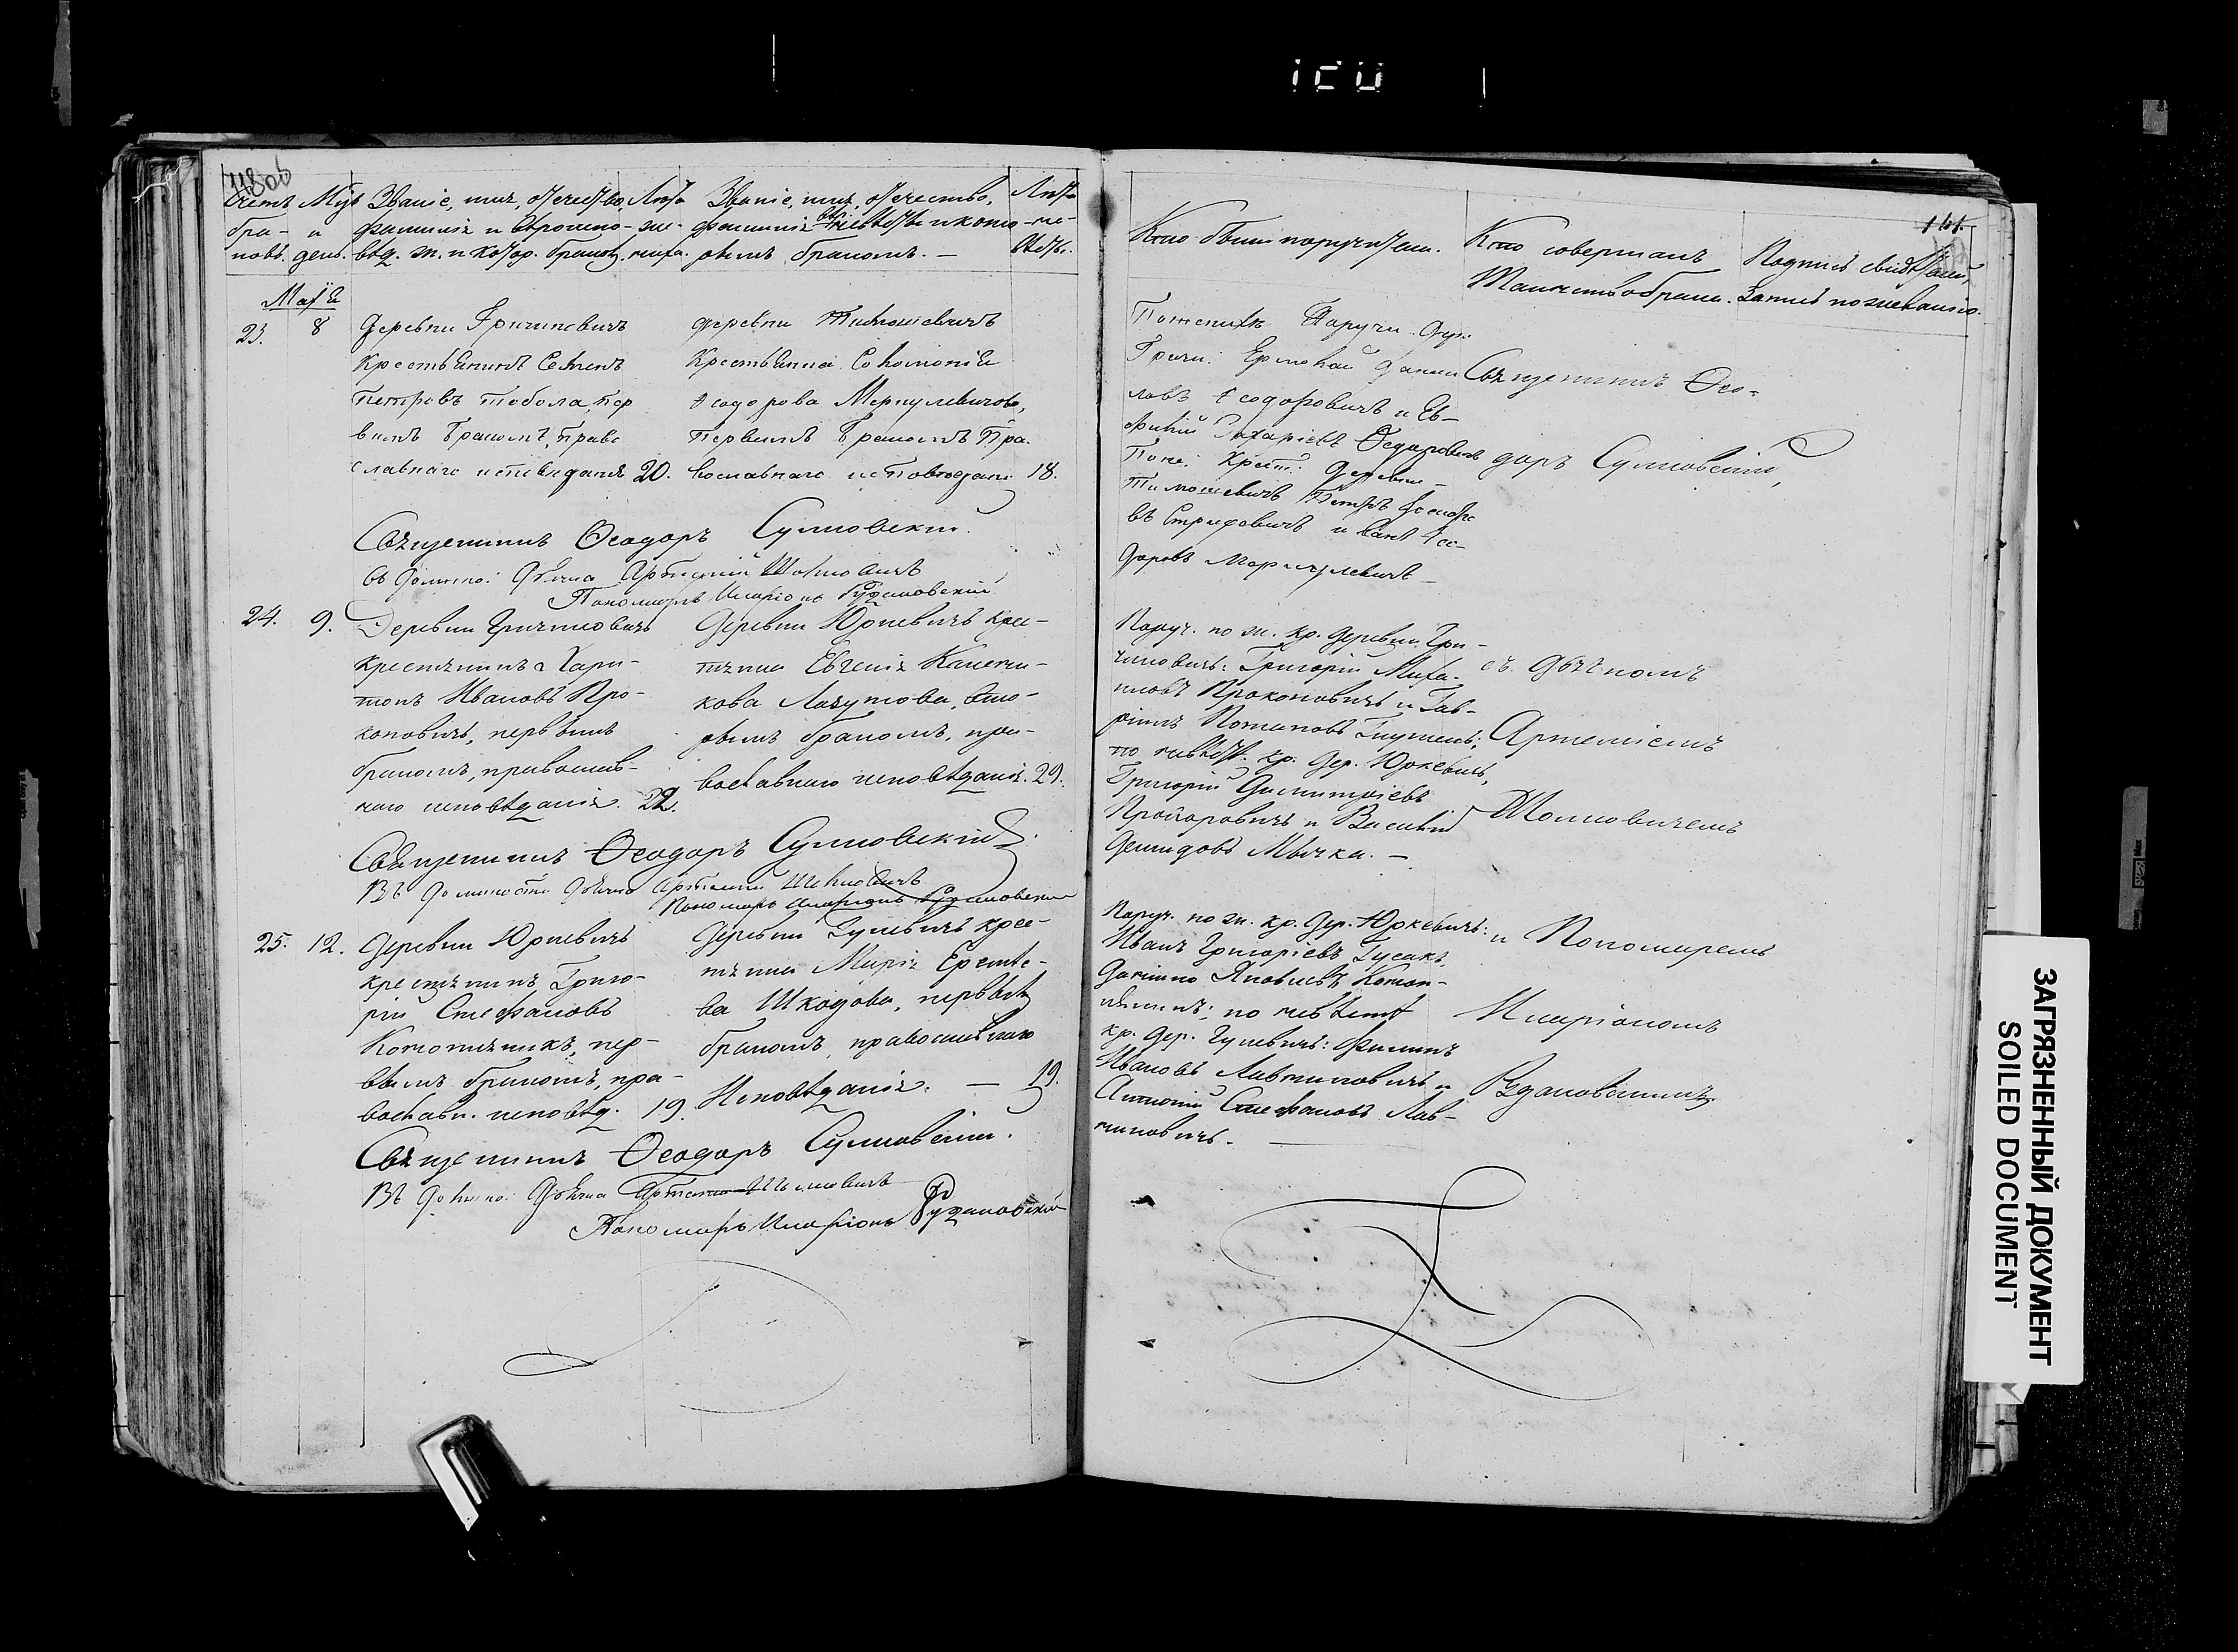 Счетъ Мцъ Званіе, имя, отечество, Лѣта Званіе, имя, отечество, Лѣта
бра- и фамилія и вѣроиспо- же- фамилія невѣсты и кото- не-
ковъ. день. вѣд. ж. и котор. бракомъ. ниха. рымъ бракомъ. — вѣсты.
Маія
23. 8 деревни Гричиновичъ
Крестьянинъ Семенъ
Петровъ Тобола, пер
вымъ бракомъ, право
славнаго исповѣданія 20.
деревни Тимошевичъ
Крестьянка Соломонія
Ѳеодорова Меркулевичова,
Первымъ бракомъ Пра-
вославнаго исповѣдані 18.
Священникъ Ѳеодоръ Сулковскій.
въ должно: Дьячка Артемій Шолковичъ
Пономаръ Иларіонъ Рудановскій
24. 9. Деревни Гричиновичъ
крестянинъ Хари-
тонъ Ивановъ Про-
коповичъ, первымъ
бракомъ, православ-
наго исповѣданія. 22.
Деревни Юркевичъ крес-
тянка Евгенія Калени-
кова Лазутова, вто-
рымъ бракомъ, пра-
вославнаго исповѣданія. 29.
Священникъ Ѳеодоръ Сулковскій.
Въ должности дьячка Артемій Шолковичъ
Пономаръ Иларіонъ Рудановскій
25. 12. Деревни Юркевичъ
крестянинъ Григо-
рій Стефановъ
Котопчикъ, пер-
вымъ бракомъ, пра-
вославн. исповѣд. 19.
Деревни Гулевичъ крес-
тянка Марія Еремѣе-
ва Шкодова, первымъ
бракомъ, православнаго
Исповѣданія. — 19.
Священникъ Ѳеодоръ Сулковскій.
Въ должно: Дьячка Артемій Шолковичъ
Пономаръ Иларіонъ Рудановскій
Кто были поручители.
Кто совершалъ
Таинство брака.
Подпись свидѣтелей,
Запись по желанію.
Поженихѣ Поручи. дер.
Гричи: Ермолай Данил
ловъ Ѳеодоровичъ и Ев-
Поне: Крест: Деревни
Тимошевичъ Петръ
въ Стриховичъ и Ѳео-
доровъ Маркулевичъ —
Священникъ Ѳео-
доръ Сулковскій,
Поруч. по ж. кр. деревни Гри-
чиновичъ: Григорій Миха-
иловъ Прокоповичъ и Гав-
ріилъ Потаповъ
по невѣст. кр. дер. Юркевичъ,
Григорій Димитріевъ
Прохоровичъ и Василій
Демидовъ Мычка. —
съ дьячкомъ
Артеміемъ
Шолковичемъ
Поруч. по ж. кр. дер. Юркевичъ:
Иванъ Григоріевъ Гусакъ,
Данило Яковлевъ
по невѣстѣ
кр. дер. Гулевичъ: Филипъ
Ивановъ Лавриновичъ и
Антоній Стефановъ Лав-
риновичъ. —
и Пономаремъ
Иларіономъ
Рудановскимъ.
ЗАГРЯЗНЕННЫЙ ДОКУМЕНТ
SOILED DOCUMENT